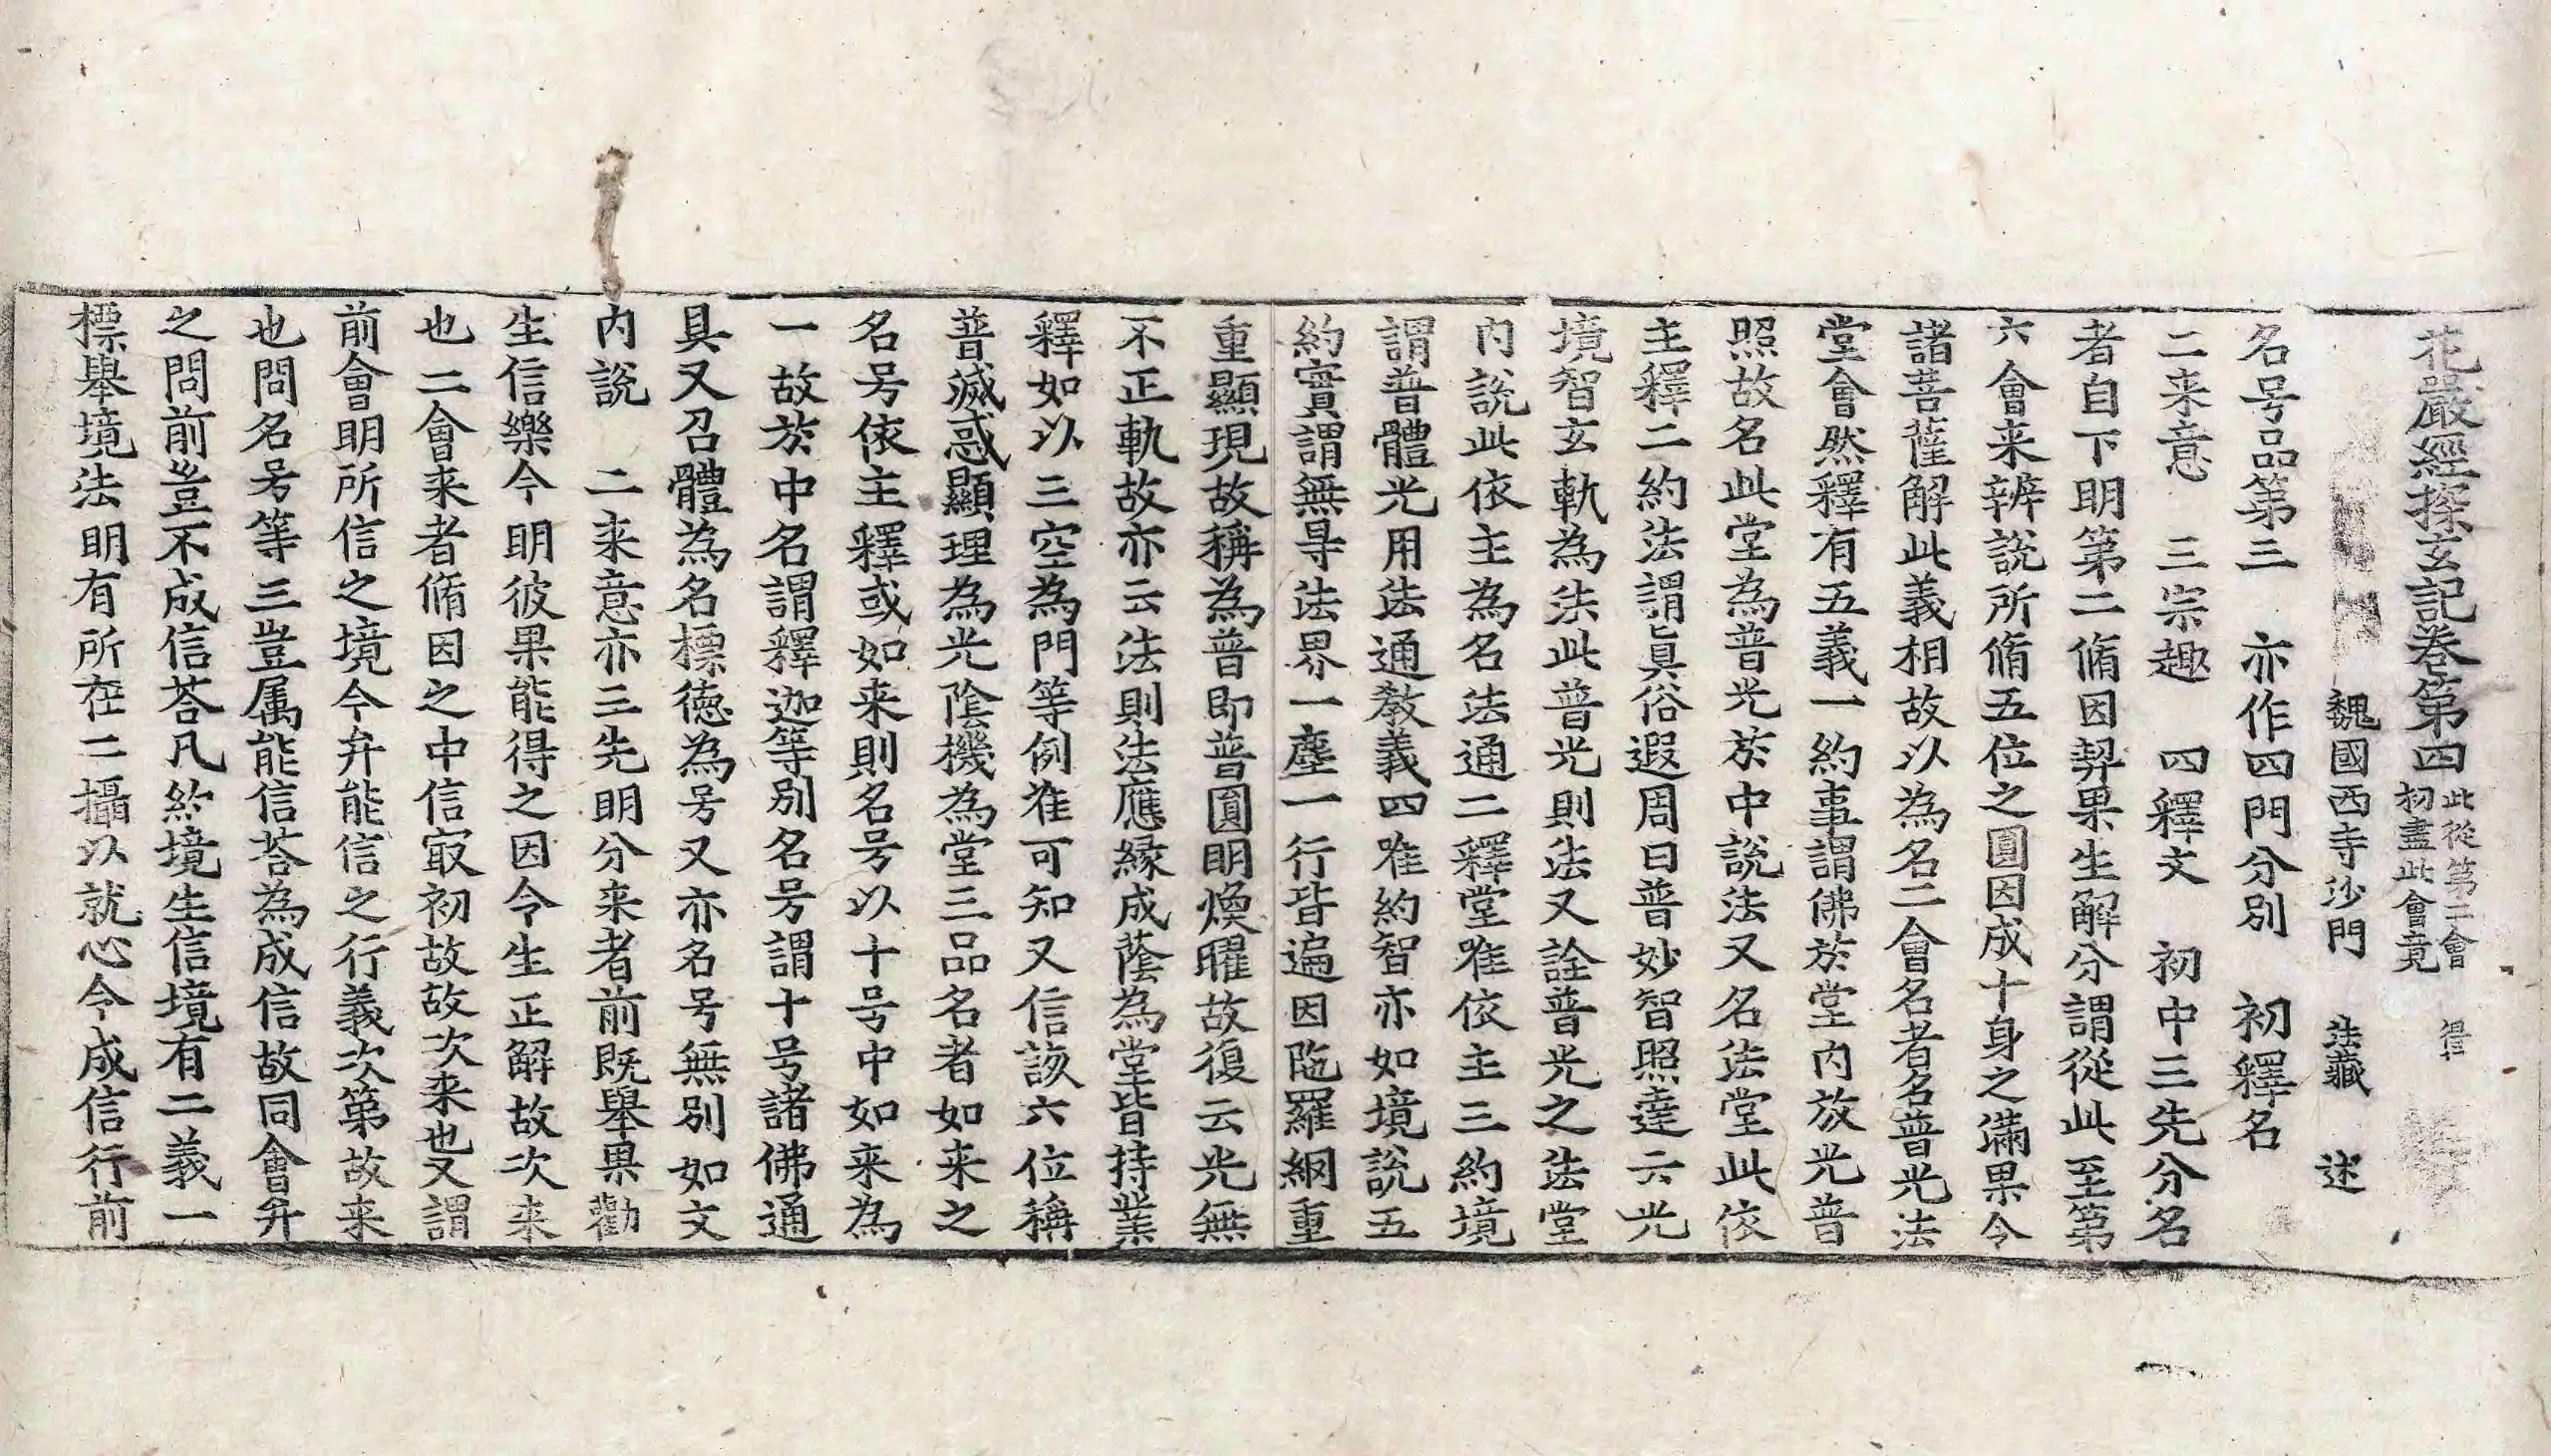 花嚴經探玄記卷第四 此從第二會初盡此會竟
魏國西寺沙門 法藏 述
名号品第三 亦作四門分別 初釋名
二来意 三宗趣 四釋文 初中三先分名
者自下明第二脩因契果生解分謂從此至第
六會来辨說所脩五位之圓因成十身之滿果令
諸菩薩解此義相故以為名二會名者名普光法
堂會然釋有五義一約事謂佛於堂内放光普
照故名此堂為普光於中說法又名法堂此依
主釋二約法謂真俗遐周曰普妙智照達云光
境智玄軌為法此普光則法又詮普光之法堂
内說此依主為名法通二釋堂唯依主三約境
謂普體光用法通教義四唯約智亦如境說五
約實謂無㝵法界一塵一行皆遍因陁羅網重
重顯現故稱為普即普圓明煥曜故復云光無
不正軌故亦云法則法應緣成蔭為堂皆持業
釋如以三空為門等例准可知又信該六位稱
普滅惑顯理為光陰機為堂三品名者如来之
名号依主釋或如来則名号以十号中如来為
一故於中名謂釋迦等別名号謂十号諸佛通
具又召體為名標德為号又亦名号無別如文
内說 二来意亦三先明分来者前既舉果勸
生信樂今明彼果能得之因令生正解故次来
也二會来者脩因之中信㝡初故故次来也又謂
前會明所信之境今弁能信之行義次第故来
也問名号等三豈属能信荅為成信故同會弁
之問前豈不成信荅凡約境生信境有二義一
標舉境法明有所在二攝以就心令成信行前